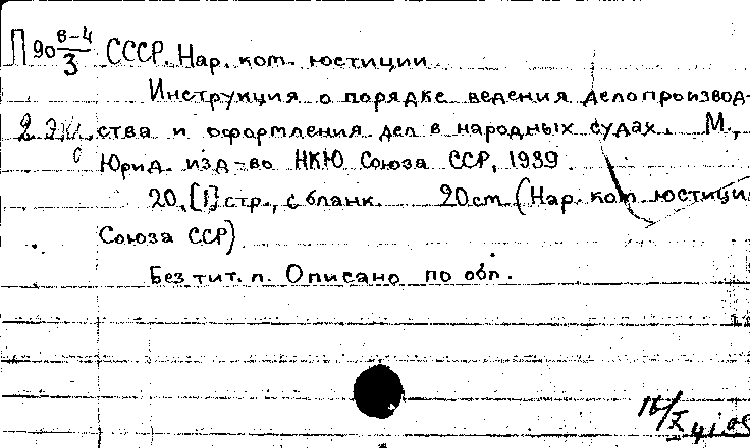 П 90 8-4/3 СССР. Нар. ком. юстиции
Инструкция о порядке ведения делопроизвод-
2 экз. ства и оформления дел в народных судах. М.,
Юрид. изд-во НКЮ Союза ССР, 1939
20, [1] стр., с бланк. 20 см. (Нар. ком. юстиции
Союза ССР)
Без тит. л. Описано по обл.